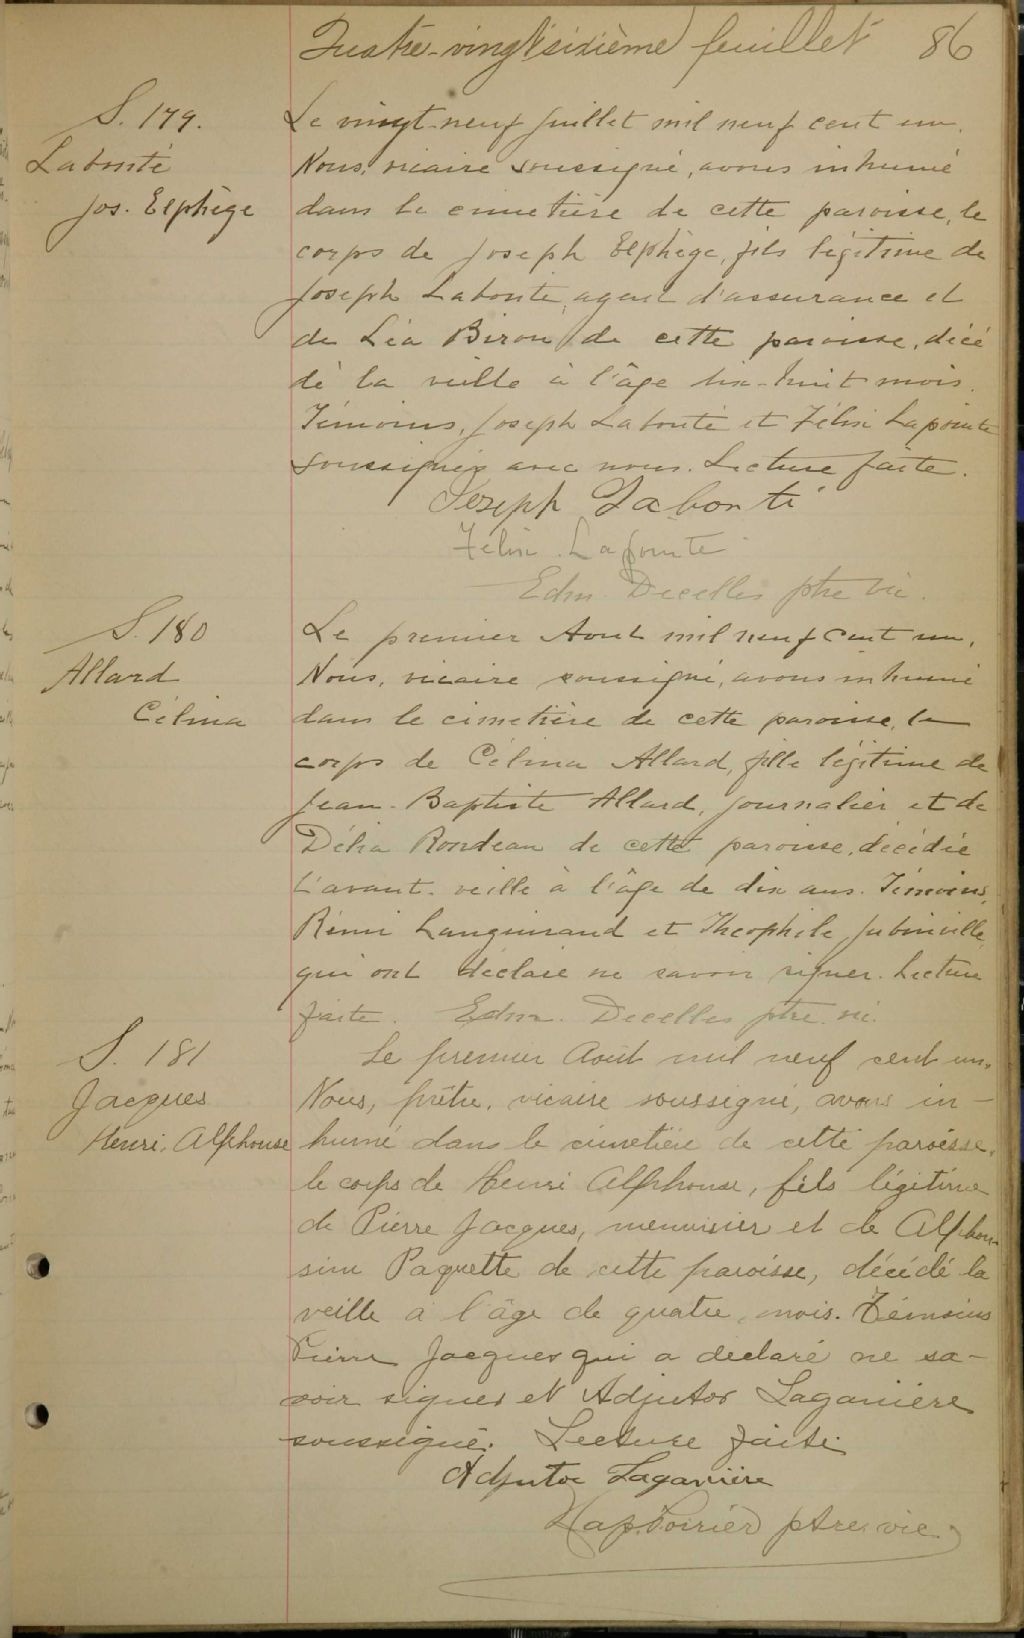 Quatre-vingt sixième feuillet 86
S. 179.
Labonté
Jos. Elphège
Le vingt-neuf juillet mil neuf cent un.
Nous, vicaire soussigné, avons inhumé
dans le cimetière de cette paroisse, le
corps de Joseph Elphège, fils légitime de
Joseph Labonté, agent d'assurance et
de Léa Biron de cette paroisse, décé
dé la veille à l'âge dix-huit mois.
Témoins, Joseph Labonté et Félix Lapointe
soussignés avec nous. Lecture faite.
Joseph Labonté
Félix Lapointe
Edm. Decelles ptre vic.
S. 180
Allard
Célina
Le premier Aout mil neuf cent un.
Nous, vicaire soussigné, avons inhumé
dans le cimetière de cette paroisse, le
corps de Célina Allard, fille légitime de
Jean-Baptiste Allard, journalier et de
Délia Rondeau de cette paroisse, décédée
l'avant-veille à l'âge de dix ans. Témoins,
Rémi Languirand et Théophile Jubinville,
qui ont déclaré ne savoir signer. Lecture
faite. Edm. Decelles ptre. vic.
S. 181
Jacques
Henri, Alphonse
Le premier Août mil neuf cent un.
Nous, prêtre, vicaire soussigné, avons in-
humé dans le cimetière de cette paroisse,
le corps de Henri Alphonse, fils légitime
de Pierre Jacques, menuisier et de Alphon-
sine Paquette de cette paroisse, décédé la
veille à l'âge de quatre mois. Témoins
Pierre Jacques qui a declaré ne sa-
voir signer et Adjutor Laganière
soussigné. Lecture faite.
Adjutor Laganière
Nap. Poirier ptre. vic.